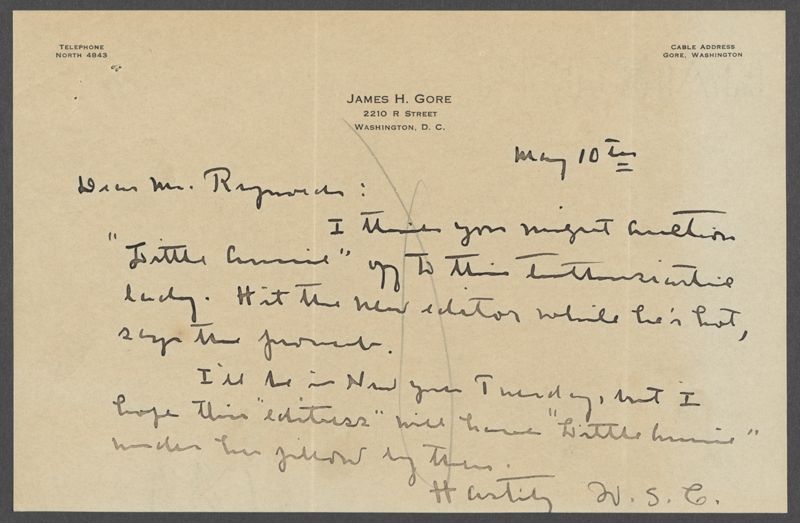 TELEPHONE
NORTH 4843
CABLE ADDRESS
GORE, WASHINGTON
JAMES H. GORE
2210 R STREET
WASHINGTON, D. C.
May 10th
Dear Mr. Reynolds:
I think you might auction
"Little Annie" off to this enthusiastic
lady. Hit the new editor while he's hot,
says the proverb.
I'll be in New York Tuesday, but I
hope this "editress" will have "Little Annie"
under her pillow by then.
Hastily W. S. C.